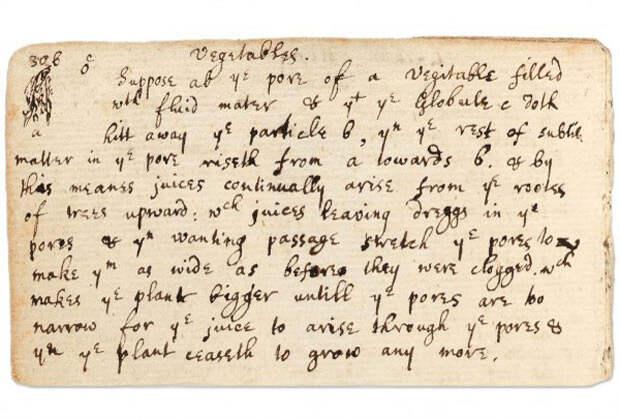 306
c
Vegetables.
Suppose ab yᵉ pore of a Vegitable filled
wᵗʰ fluid mater & yᵗ yᵉ Globule c doth
a hitt away yᵉ particle b, yⁿ yᵉ rest of subtile
matter in yᵉ pore riseth from a towards b. & by
this meanes juices continually arise from yᵉ rootes
of trees upward: wᶜʰ juices leaving dreggs in yᵉ
pores & yⁿ wanting passage stretch yᵉ pores to
make yᵐ as wide as before they were clogged. wᶜʰ
makes yᵉ plant bigger untill yᵉ pores are too
narrow for yᵉ juice to arise through yᵉ pores &
yⁿ yᵉ plant ceaseth to grow any more.